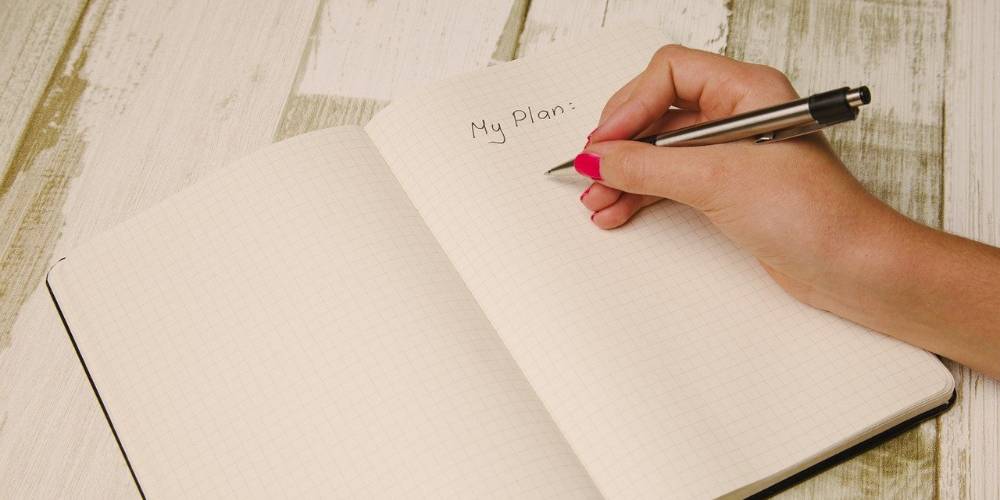 My Plan: